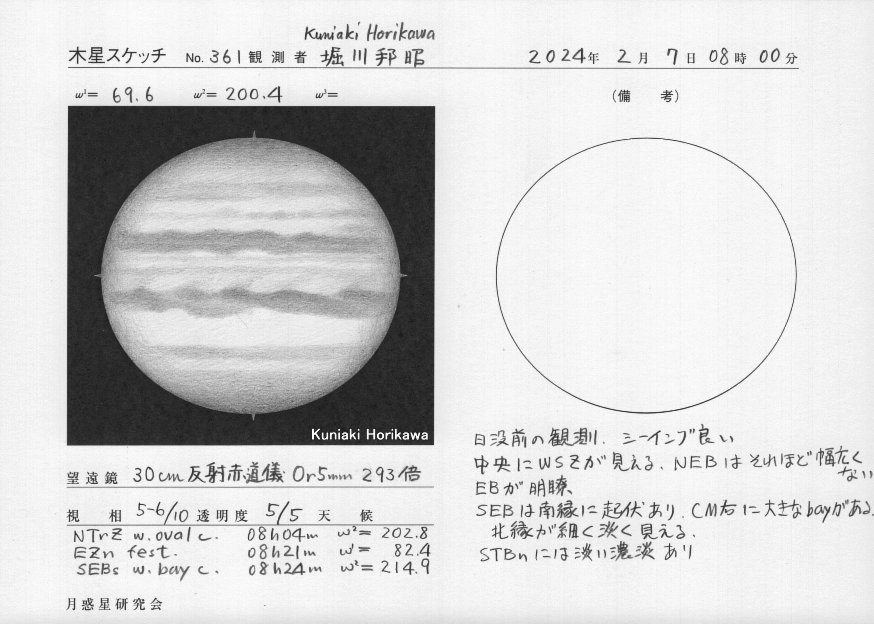 Kuniaki Horikawa
木星スケッチ No. 361 観測者 堀川邦昭 2024年 2月 7日 08時 00分
ω¹= 69.6 ω²= 200.4 ω³=
(備 考)
Kuniaki Horikawa
望遠鏡 30cm反射赤道儀 Or5mm 293倍
視 相 5-6/10 透明度 5/5 天 候
NTrZ w.oval c. 08h04m ω²= 202.8
EZn fest. 08h21m ω¹= 82.4
SEBs w.bay c. 08h24m ω²= 214.9
月惑星研究会
日没前の観測. シーイング良い
中央にWSZが見える. NEBはそれほど幅広く
ない
EBが明瞭.
SEBは南縁に起伏あり. CM右に大きなbayがある.
北縁が細く淡く見える.
STBnには淡い濃淡あり